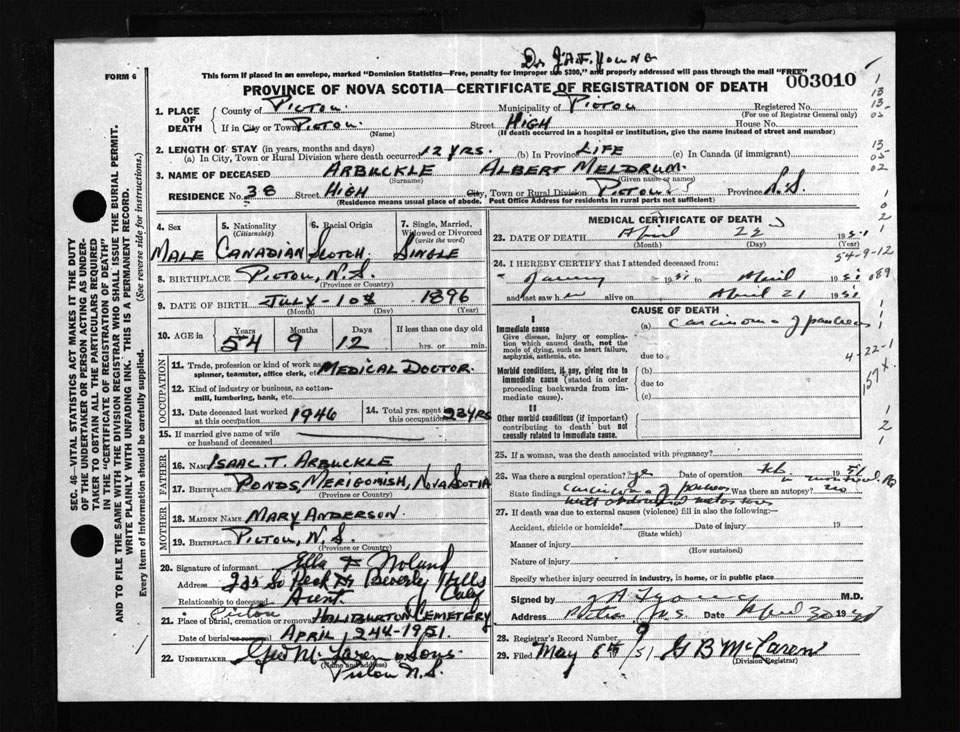 Dr J.A.F. Young
FORM 6
This form if placed in an envelope, marked "Dominion Statistics—Free, penalty for improper use $300," and properly addressed will pass through the mail "FREE"
PROVINCE OF NOVA SCOTIA—CERTIFICATE OF REGISTRATION OF DEATH
003010
1. PLACE OF DEATH
County of Pictou. Municipality of Pictou Registered No.
(For use of Registrar General only)
If in City or Town Pictou. Street High House No.
(Name) (If death occurred in a hospital or institution, give the name instead of street and number)
2. LENGTH OF STAY (in years, months and days)
(a) In City, Town or Rural Division where death occurred 12 yrs. (b) In Province Life (c) In Canada (if immigrant)
3. NAME OF DECEASED Arbuckle Albert Meldrum.
(Surname) (Given name or names)
RESIDENCE No. 38 Street High City, Town or Rural Division Pictou Province N.S.
(Residence means usual place of abode, Post Office Address for residents in rural parts not sufficient)
4. Sex
Male
5. Nationality
(Citizenship)
Canadian
6. Racial Origin
Scotch
7. Single, Married, Widowed or Divorced
(write the word)
Single
8. BIRTHPLACE Pictou, N.S.
(Province or Country)
9. DATE OF BIRTH July - 10th 1896
(Month) (Day) (Year)
10. AGE in Years Months Days If less than one day old
54 9 12 hrs. or min.
OCCUPATION
11. Trade, profession or kind of work as spinner, teamster, office clerk, etc. Medical Doctor.
12. Kind of industry or business, as cotton-mill, lumbering, bank, etc.
13. Date deceased last worked at this occupation 1946
14. Total yrs. spent in this occupation 23 yrs
15. If married give name of wife or husband of deceased
FATHER
16. Name Isaac T. Arbuckle
17. Birthplace Ponds, Merigomish, Nova Scotia
(Province or Country)
MOTHER
18. Maiden Name Mary Anderson.
19. Birthplace Pictou, N.S.
(Province or Country)
20. Signature of informant Ella F Noland
Address Beverly Hills Calif
Relationship to deceased Aunt.
21. Place of burial, cremation or removal Pictou Haliburton Cemetery
Date of burial April, 24th - 1951.
22. UNDERTAKER Geo McLaren & Sons.
(Name and Address)
Pictou N.S.
MEDICAL CERTIFICATE OF DEATH
23. DATE OF DEATH April 22 1951
(Month) (Day) (Year)
54-9-12
24. I HEREBY CERTIFY that I attended deceased from:
January 1951 to April 1951
and last saw h alive on April 21 1951
CAUSE OF DEATH
I
Immediate cause
Give disease, injury or complication which caused death, not the mode of dying, such as heart failure, asphyxia, asthenia, etc.
(a) Carcinoma of pancreas
due to
4-22-1
157x
Morbid conditions, if any, giving rise to immediate cause (stated in order proceeding backwards from immediate cause).
(b)
due to
(c)
II
Other morbid conditions (if important) contributing to death but not causally related to immediate cause.
25. If a woman, was the death associated with pregnancy?
26. Was there a surgical operation? yes Date of operation Feb. 1951
State findings carcinoma of pancreas Was there an autopsy? no
27. If death was due to external causes (violence) fill in also the following:—
Accident, suicide or homicide? Date of injury 19
(State which)
Manner of injury
(How sustained)
Nature of injury
Specify whether injury occurred in industry, in home, or in public place
Signed by M.D.
Address Pictou N.S. Date April 30 19
28. Registrar's Record Number 9
29. Filed May 6th /51 G B McLaren
(Division Registrar)
SEC. 46—VITAL STATISTICS ACT MAKES IT THE DUTY OF THE UNDERTAKER OR PERSON ACTING AS UNDERTAKER TO OBTAIN ALL THE PARTICULARS REQUIRED IN THE "CERTIFICATE OF REGISTRATION OF DEATH" AND TO FILE THE SAME WITH THE DIVISION REGISTRAR WHO SHALL ISSUE THE BURIAL PERMIT.
WRITE PLAINLY WITH UNFADING INK. THIS IS A PERMANENT RECORD.
Every item of information should be carefully supplied. (See reverse side for instructions.)